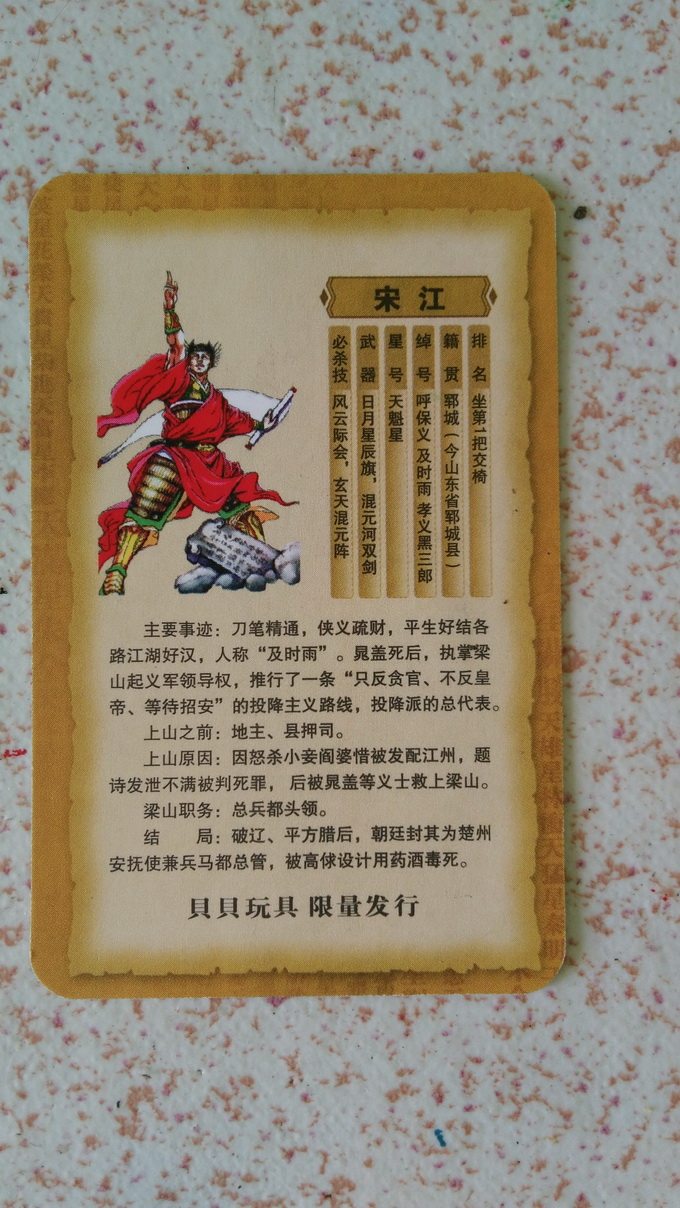 宋江
排名 坐第1把交椅
籍贯 郓城（今山东省郓城县）
绰号 呼保义 及时雨 孝义黑三郎
星号 天魁星
武器 日月星辰旗，混元河双剑
必杀技 风云际会，玄天混元阵
主要事迹：刀笔精通，侠义疏财，平生好结各
路江湖好汉，人称“及时雨”。晁盖死后，执掌梁
山起义军领导权，推行了一条“只反贪官、不反皇
帝、等待招安”的投降主义路线，投降派的总代表。
上山之前：地主、县押司。
上山原因：因怒杀小妾阎婆惜被发配江州，题
诗发泄不满被判死罪，后被晁盖等义士救上梁山。
梁山职务：总兵都头领。
结　　局：破辽、平方腊后，朝廷封其为楚州
安抚使兼兵马都总管，被高俅设计用药酒毒死。
貝貝玩具 限量发行